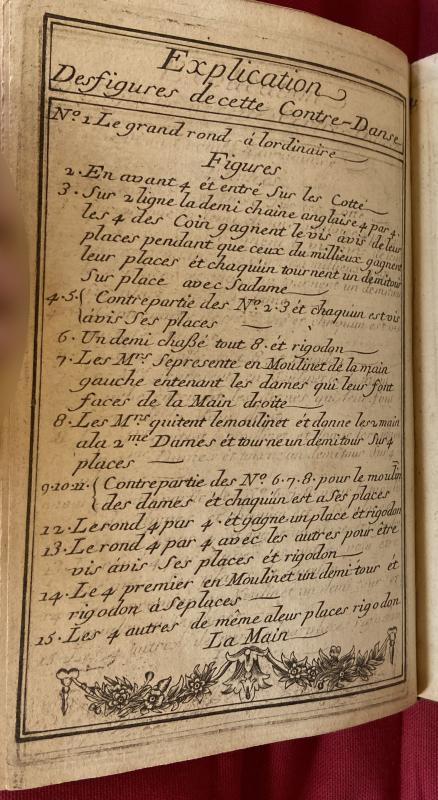 Explication
Des figures de cette Contre-Danse
N.º 1 Le grand rond á lordinaire
Figures
2. En avant 4 ét entré Sur les Cotté
3. Sur 2 ligne la demi chaine anglaise 4 par 4.
les 4 des Coin gagnent le vis avis de leur
places pendant que ceux du millieux gagnent
leur places ét chaquùn tournent un demi tour
Sur place avec Sadame
4.5. { Contrepartie des Nº. 2.3 ét chaquun est vis
avis Ses places
6. Un demi chaßé tout 8. ét rigodon
7. Les Mrs Sepresente en Moulinet de la main
gauche entenant les dames qui leur font
faces de la Main droite
8. Les Mrs quitent lemoulinet ét donne les 2 main
ala 2me Dames ét tourne un demi tour Sur 4
places
9.10.11. { Contrepartie des Nº. 6.7.8. pour le moulin
des dames ét chaquùn est a Ses places
12. Le rond 4 par 4. ét gagne un place ét rigodon
13. Le rond 4 par 4 avec les autres pour étre
vis avis Ses places ét rigodon
14. Le 4 premier en Moulinet un demi tour ét
rigodon à Se places
15. Les 4 autres de même aleur places rigodon
La Main